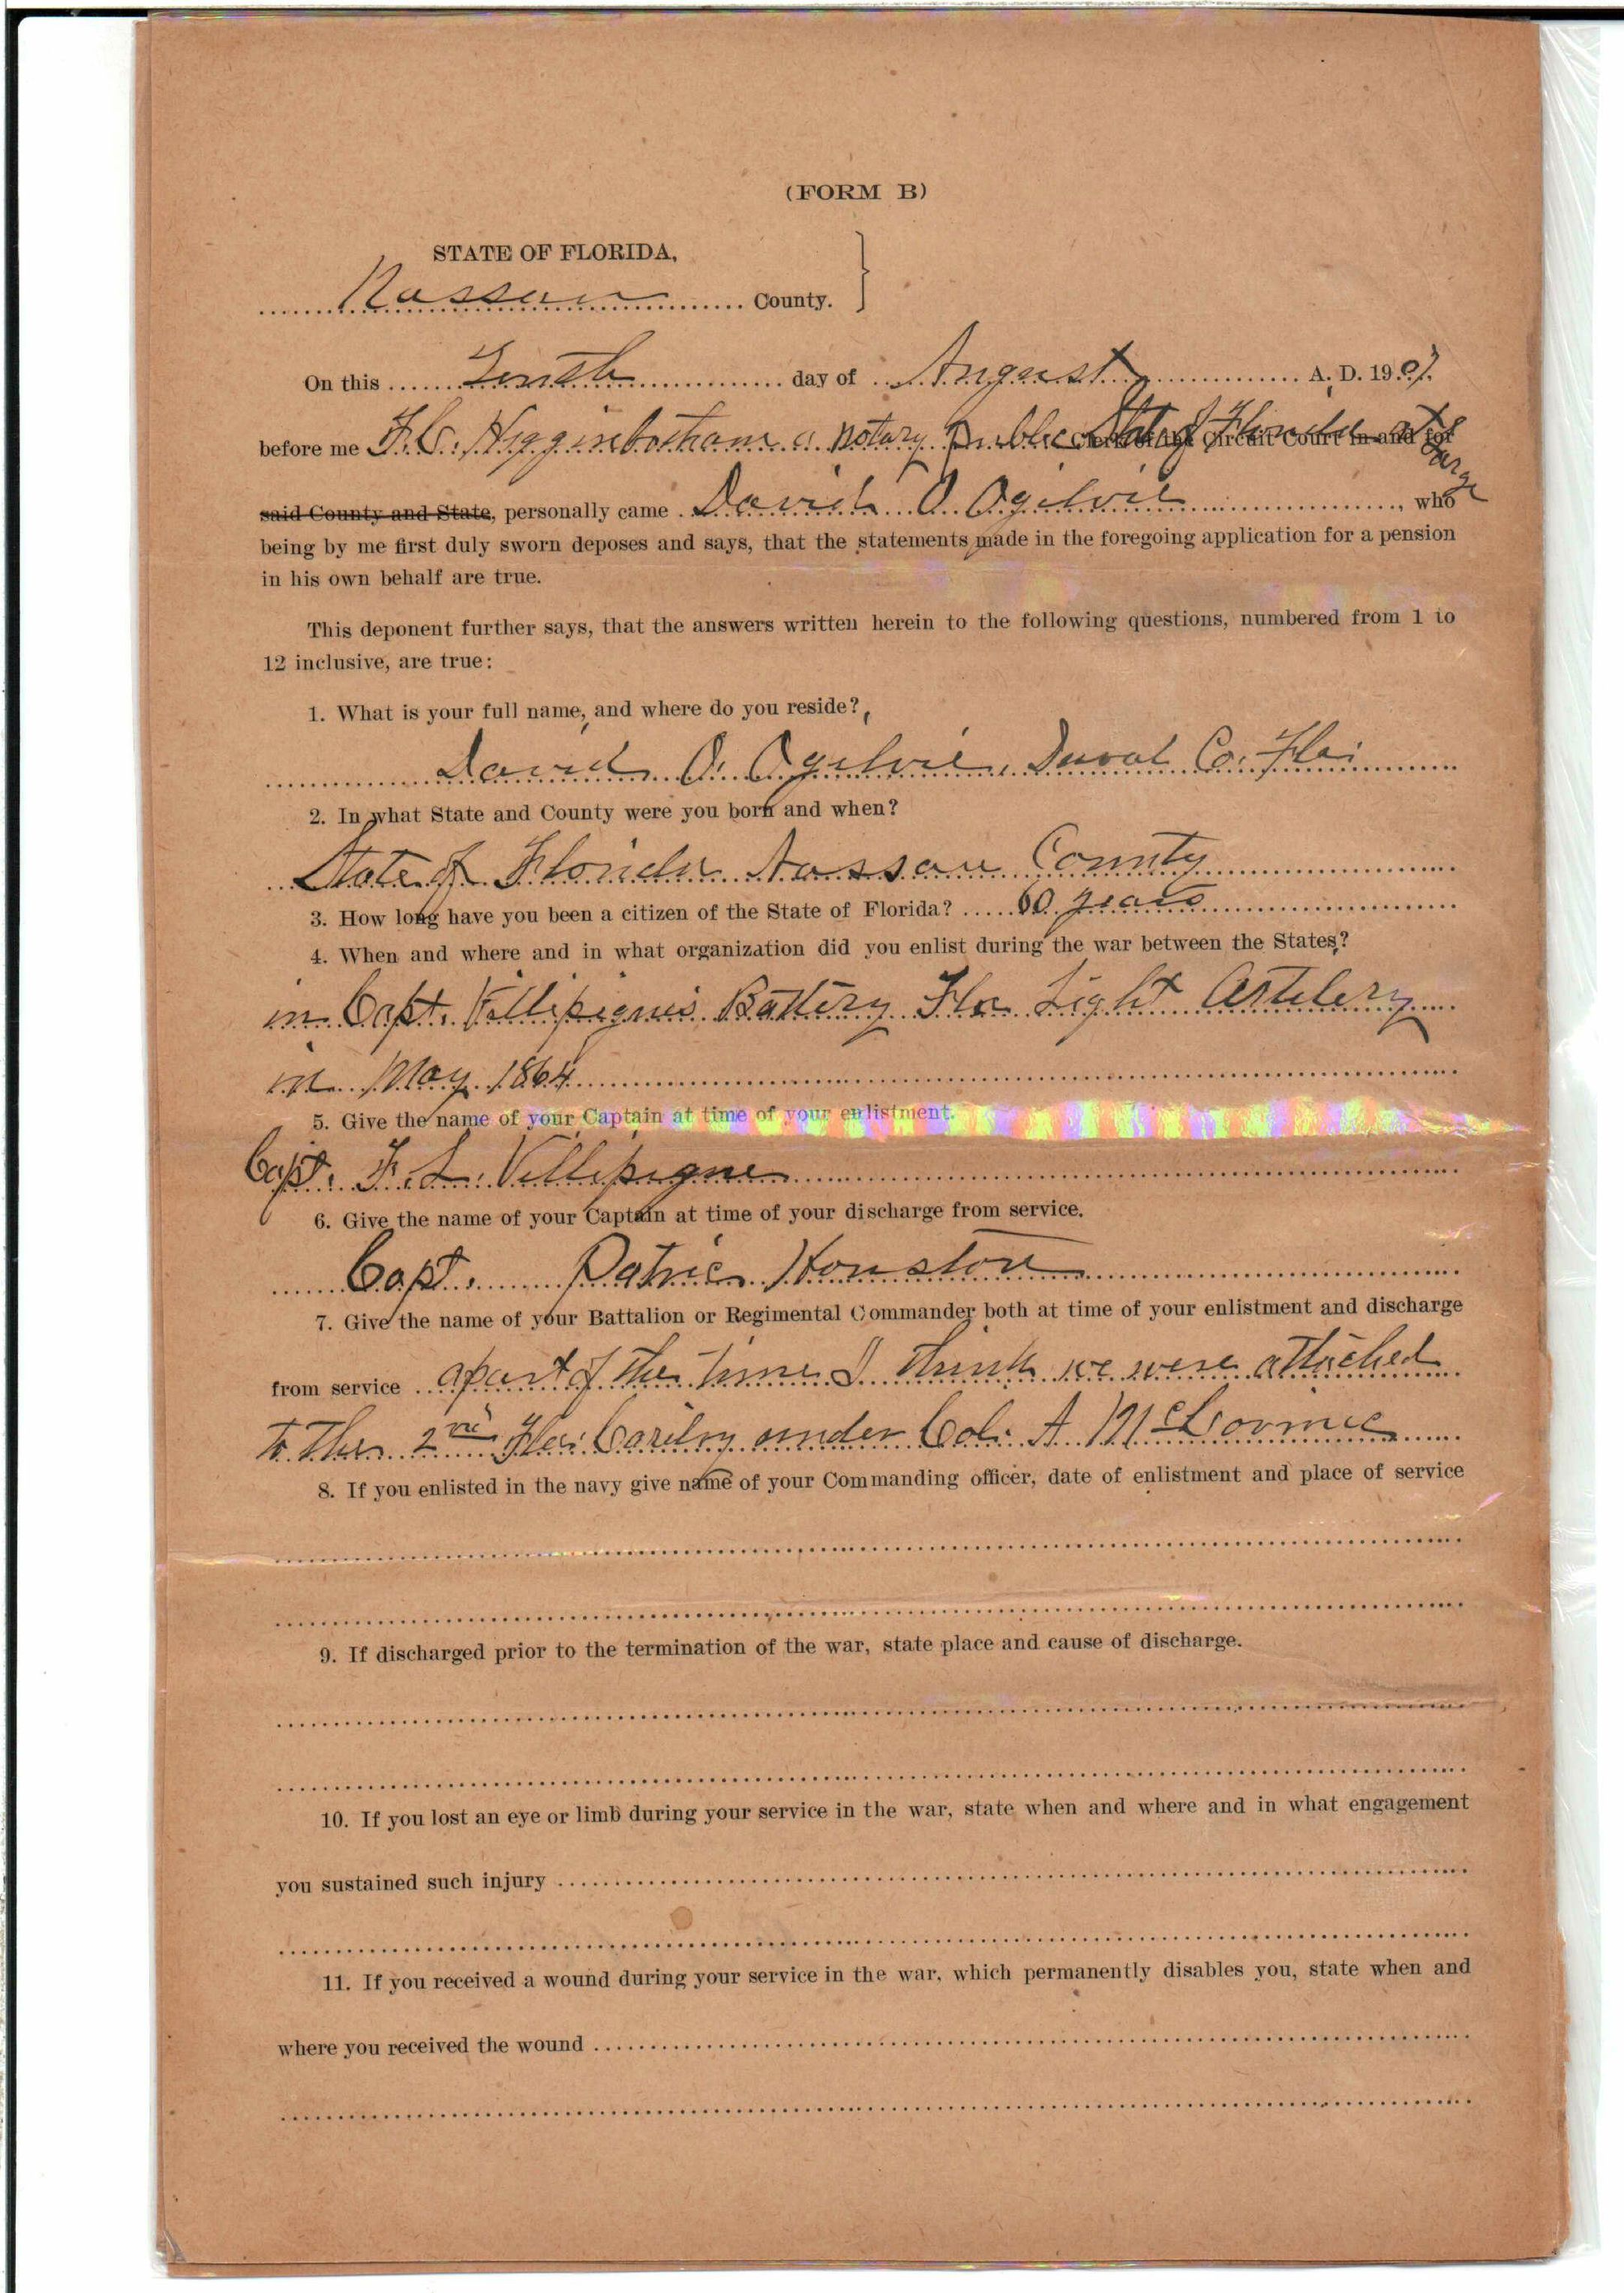 (FORM B)
STATE OF FLORIDA,
Nassau County.
On this Tenth day of August A. D. 190
before me F.C. Higginbotham a Notary Public State of Florida at Clerk of the Circuit Court in and for
large
said County and State, personally came David O. Ogilvie, who
being by me first duly sworn deposes and says, that the statements made in the foregoing application for a pension
in his own behalf are true.
This deponent further says, that the answers written herein to the following questions, numbered from 1 to
12 inclusive, are true:
1. What is your full name, and where do you reside?
David O. Ogilvie, Duval Co. Fla
2. In what State and County were you born and when?
State of Florida Nassau County
3. How long have you been a citizen of the State of Florida? 60 years
4. When and where and in what organization did you enlist during the war between the States?
in Capt. Villipigues Battery Fla Light Artilery
in May 1864
5. Give the name of your Captain at time of your enlistment.
Capt. F. L. Villipigue
6. Give the name of your Captain at time of your discharge from service.
Capt. Patric Houston
7. Give the name of your Battalion or Regimental Commander both at time of your enlistment and discharge
from service apart of the time I think we were attached
to the 2nd Fla. under Col. A McCormic
8. If you enlisted in the navy give name of your Commanding officer, date of enlistment and place of service
9. If discharged prior to the termination of the war, state place and cause of discharge.
10. If you lost an eye or limb during your service in the war, state when and where and in what engagement
you sustained such injury
11. If you received a wound during your service in the war, which permanently disables you, state when and
where you received the wound